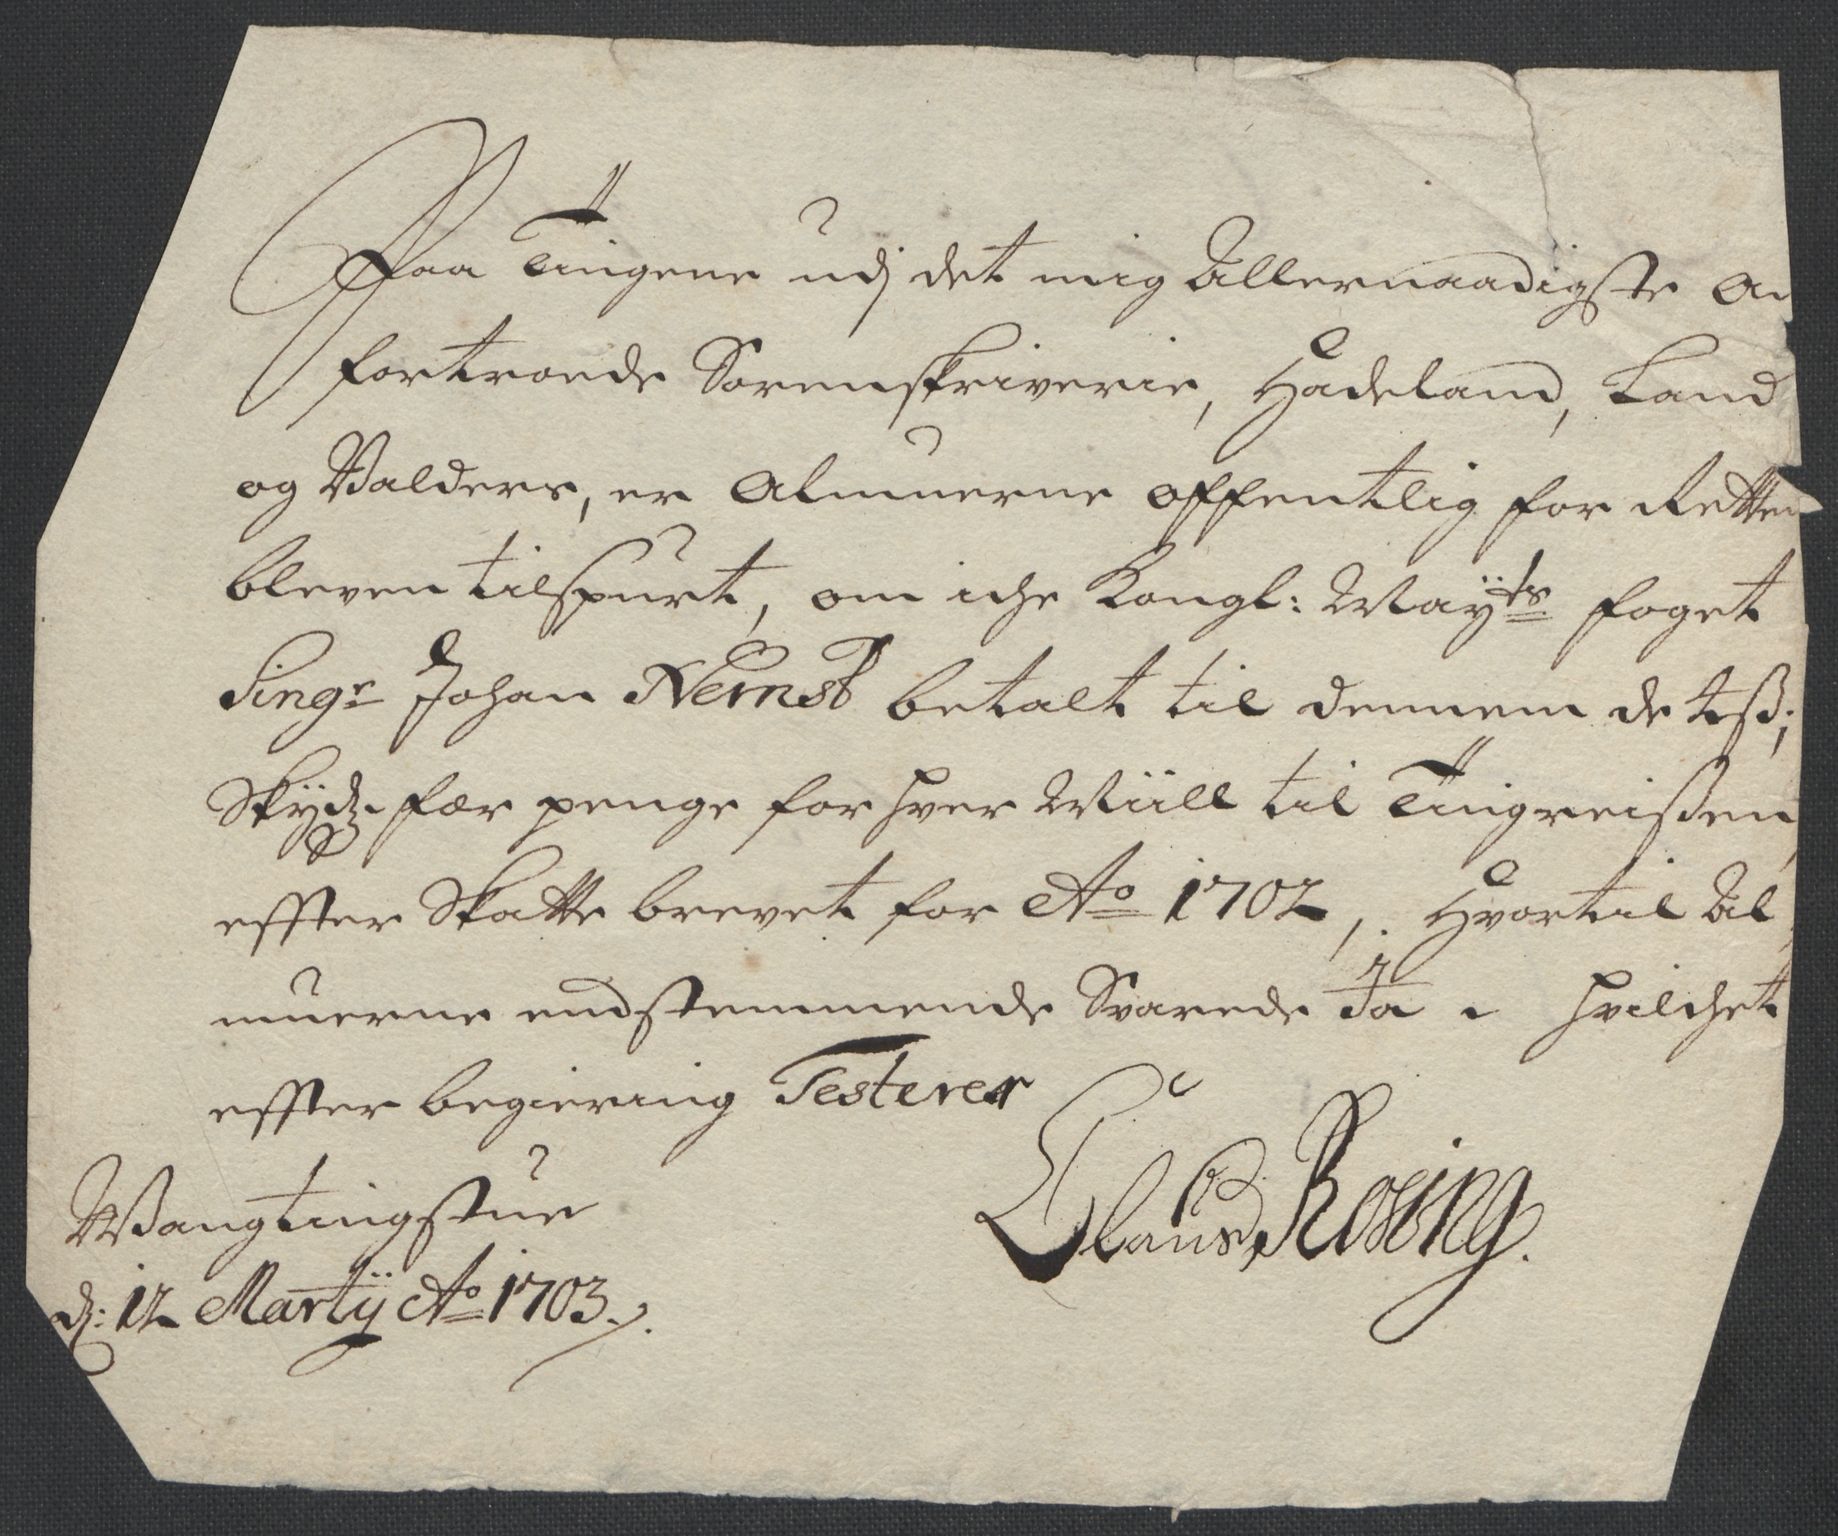 Paa Tingene udj det mig Allernaadigste An
fortroede Sorenskriverie, Hadeland, Land
og Valders, er Almuerne offentlig for Retten
bleven tilspurt, om iche Kongl: Mayts foget
Singr Johan Nernst betalt til dennem de
Skydz fær penge for hver Miill til Tingreißen
effter Skatte brevet for Ao 1702, Hvortil Al
muerne endstemmende Svarede Ja, hvilchet
effter begiering Testerer
Claus Rosing.
Wangtingstue
d: 12 Martij Ao 1703.